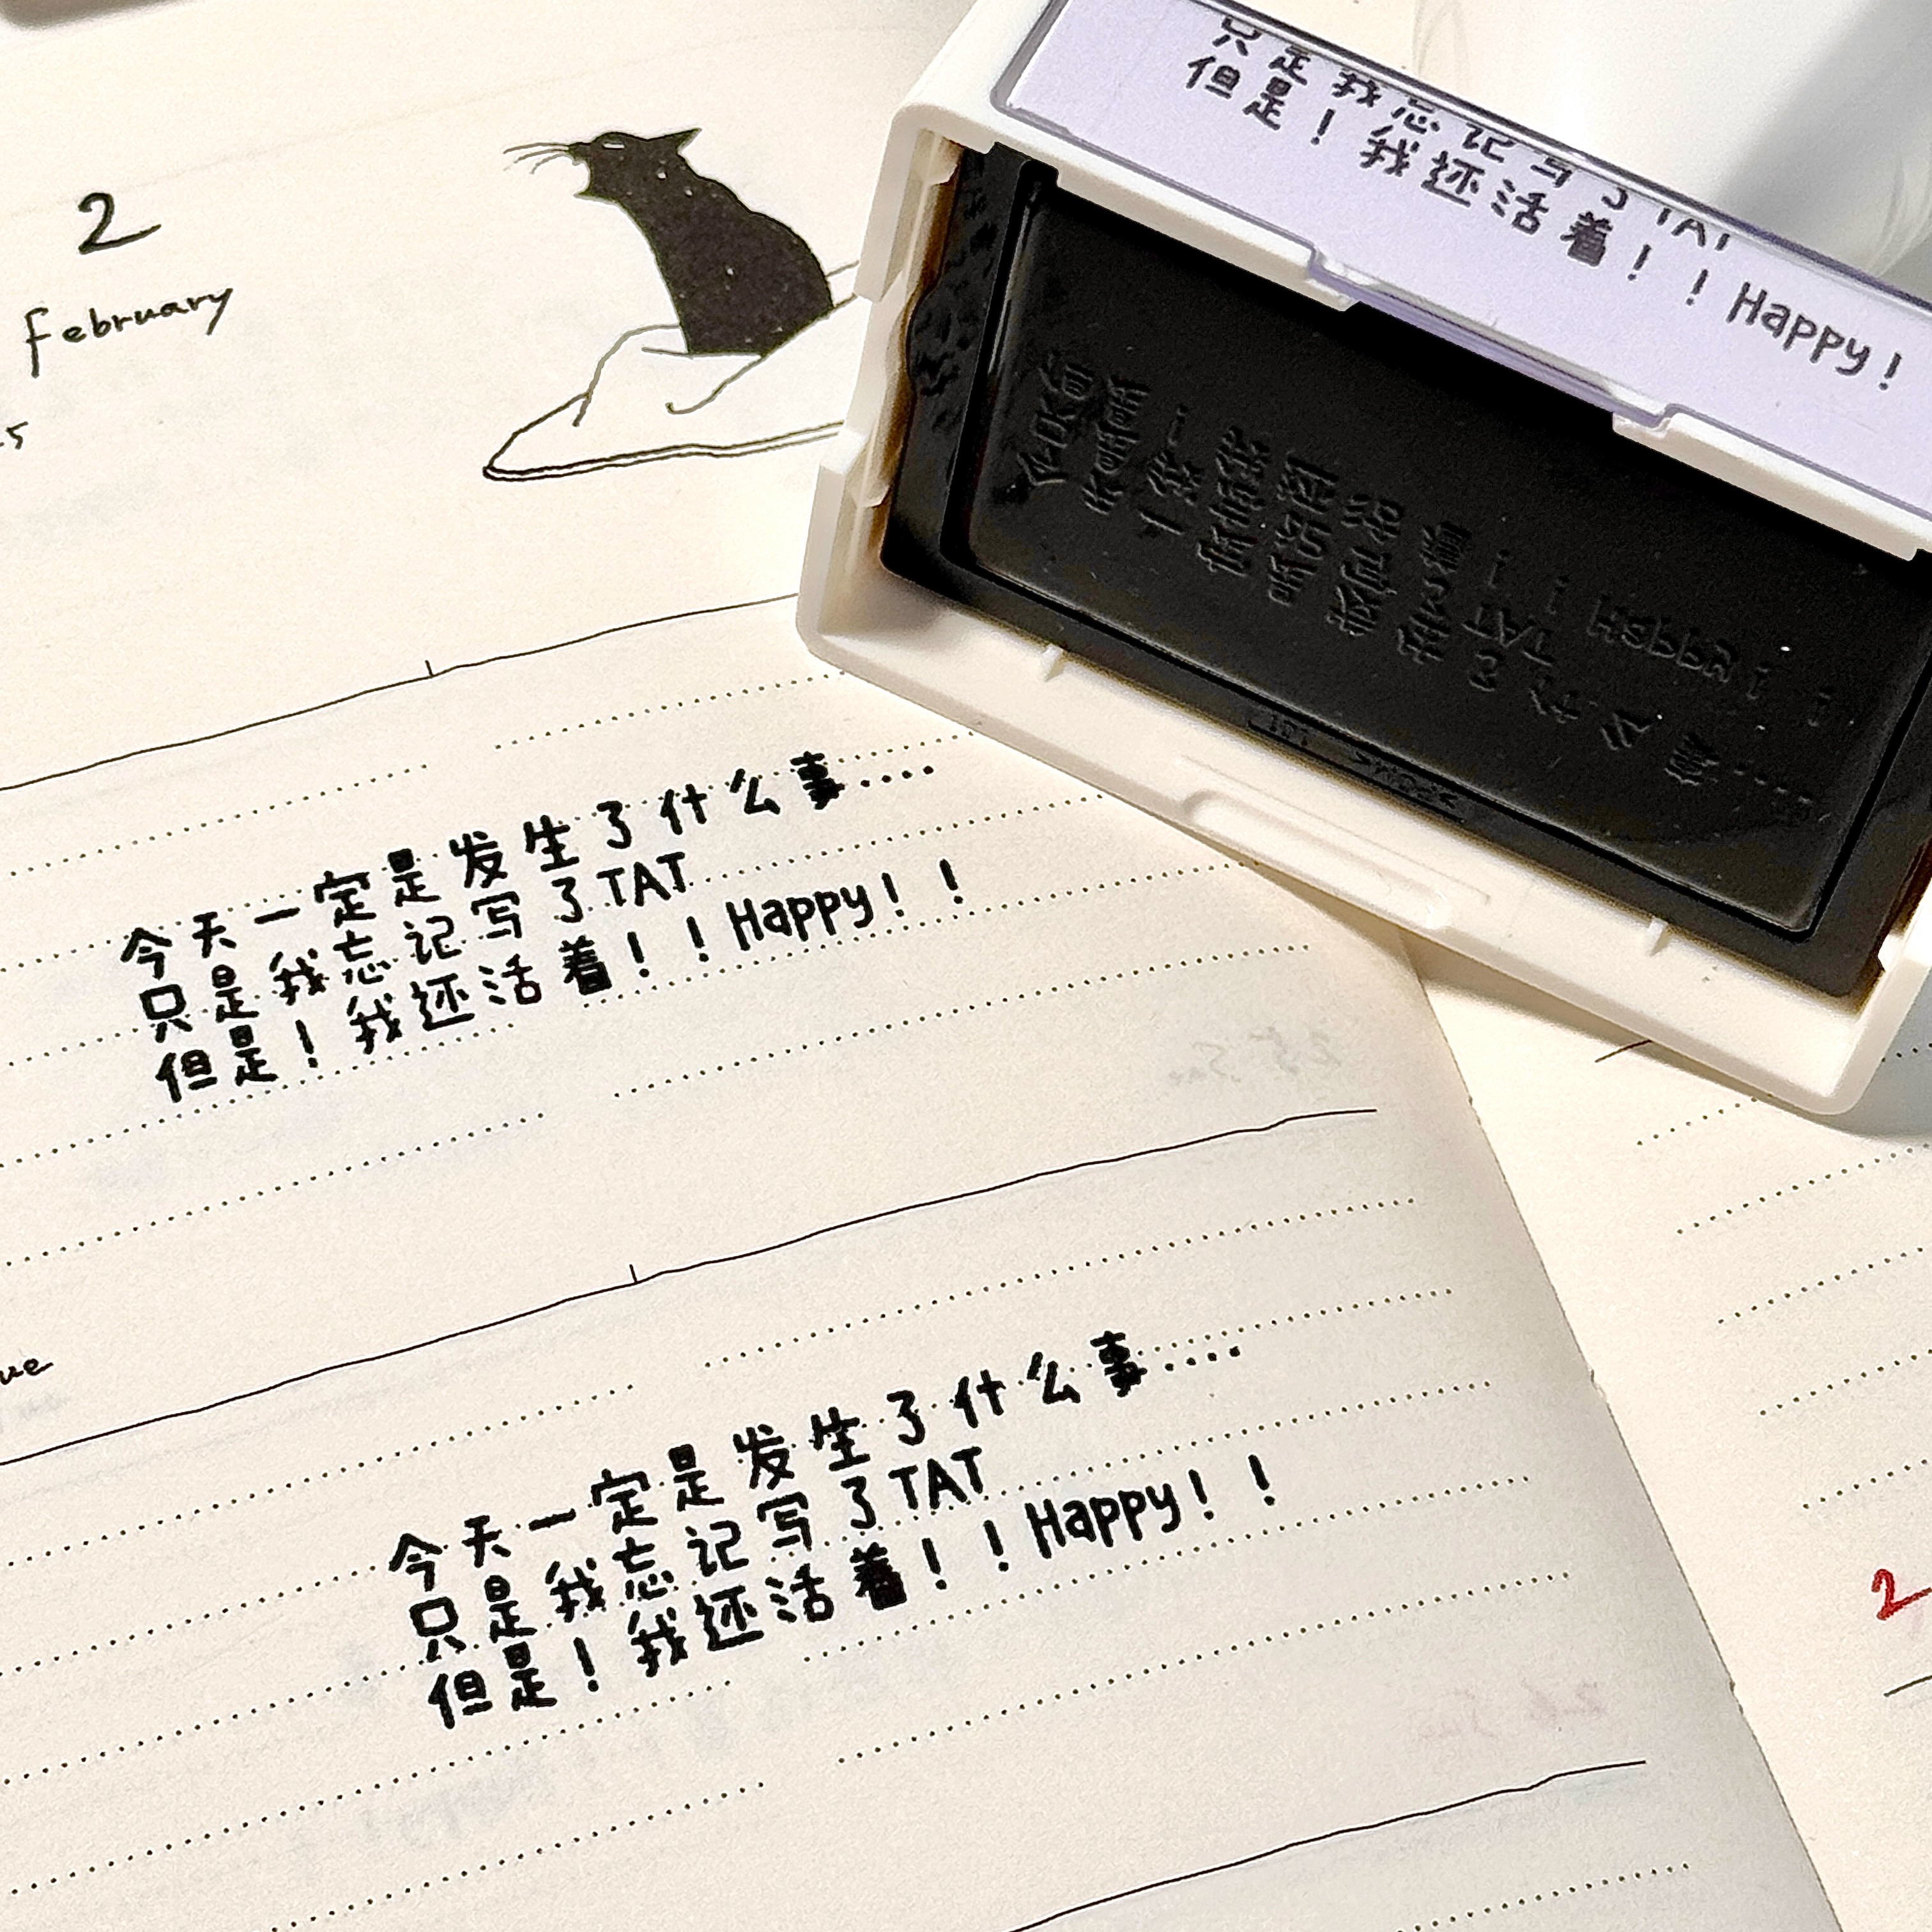 2
February
今天一定是发生了什么事....
只是我忘记写了TAT
但是！我还活着！！Happy！！
今天一定是发生了什么事....
只是我忘记写了TAT
但是！我还活着！！Happy！！
只是我忘记写了TAT
但是！我还活着！！Happy！